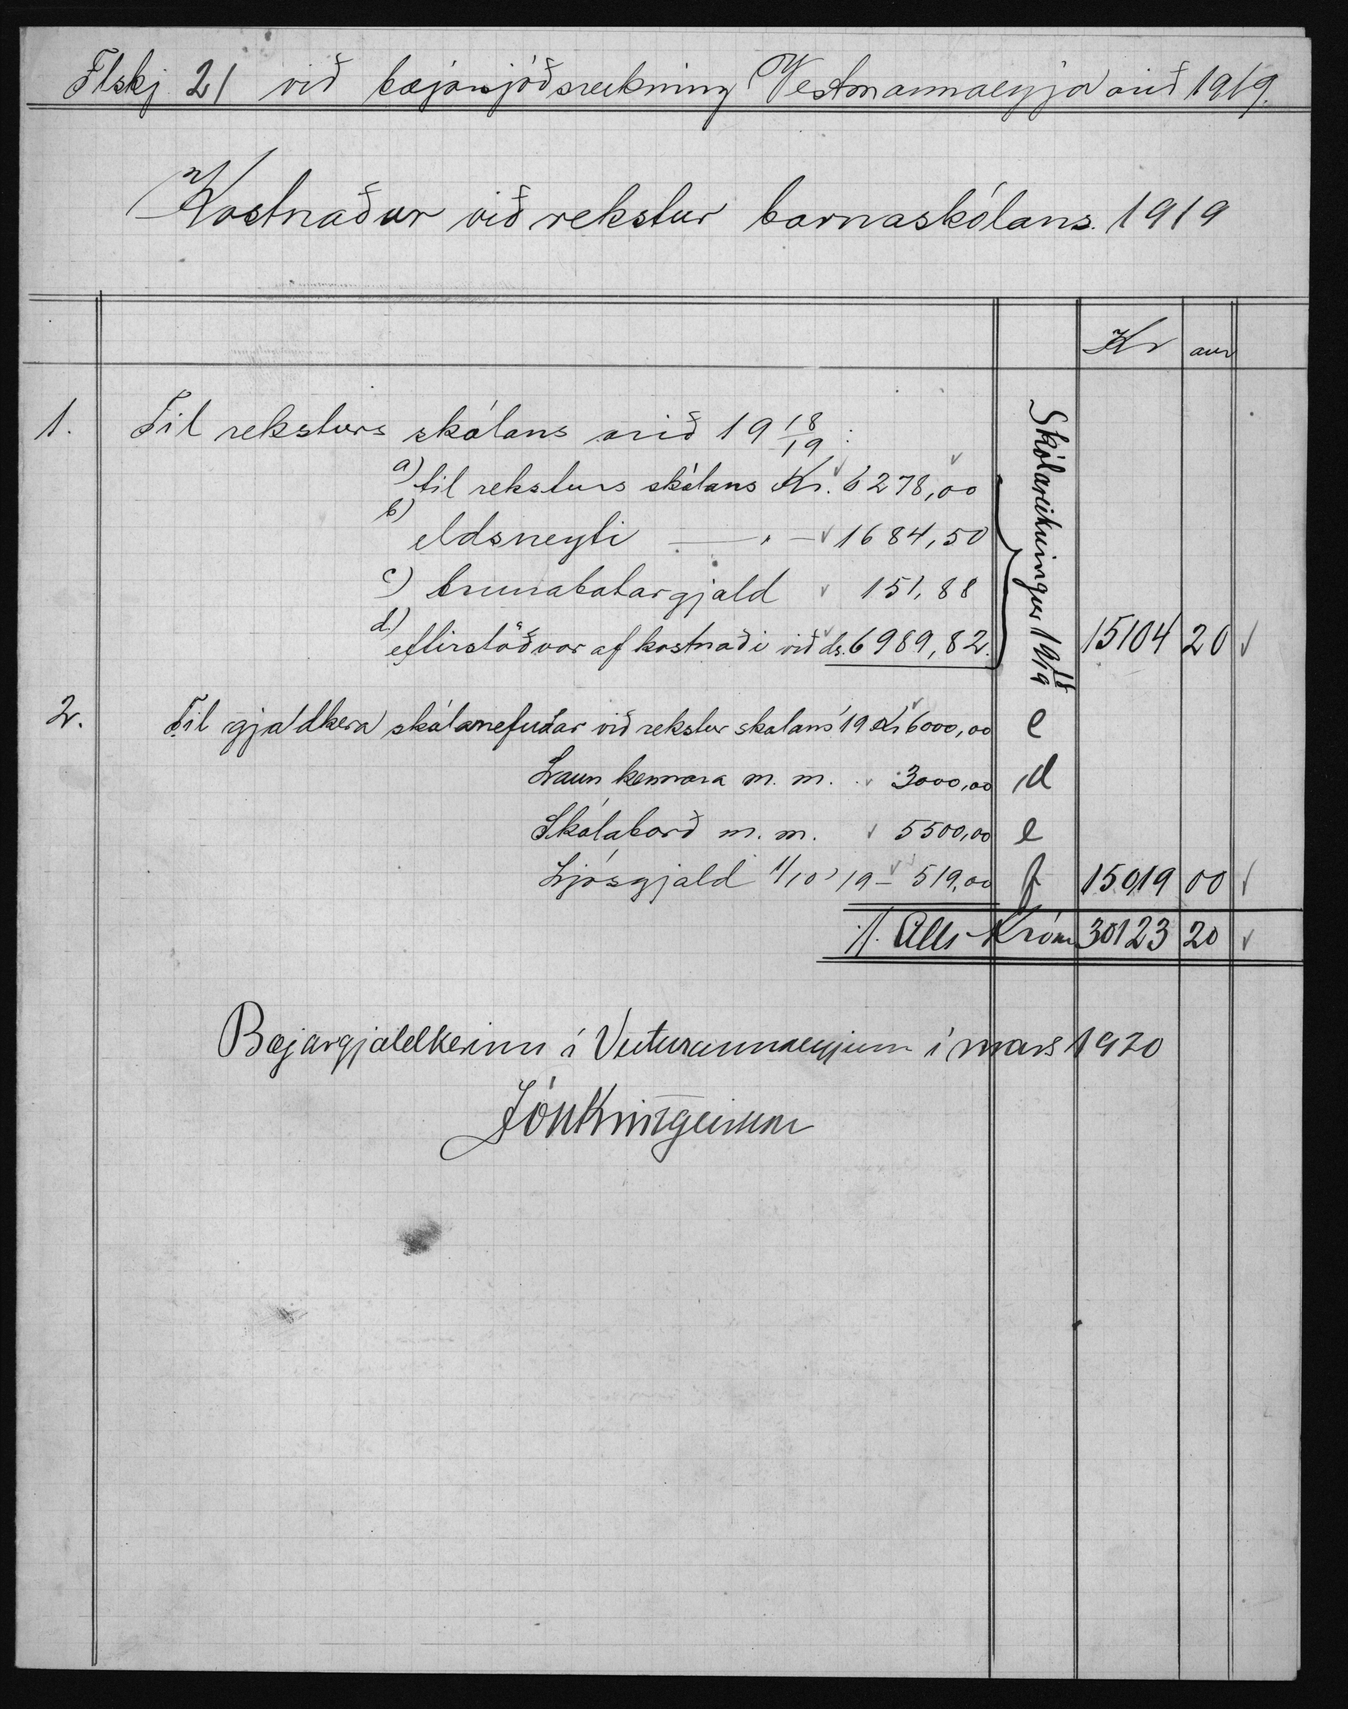 Flskj 21 við bæjarsjóðsreikning Vestmannaeyja árið 1919.
Kostnaður við rekstur barnaskólans. 1919
Kr aur
1. Til reksturs skólans árið 19 18/19 :
a) til reksturs skólans Kr. 6278,00
b) eldsneyti — " — 1684,50
c) brunabótargjald 151,88
d.) eftirstöðvar af kostnaði við ds. 6989,82. 15104 20
Skólareikningur 1918/19
2. Til gjaldkera skólanefndar við rekstur skólans '19 Kr 6000,00 c
Laun kennara m. m. 3000,00 d
Skólaborð m. m. 5500,00 e
Ljósgjald 1/10 '19 – 519,00 f 15019 00
Alls Krónur 30123 20
Bæjargjaldkerinn í Vestmannaeyjum í mars 1920